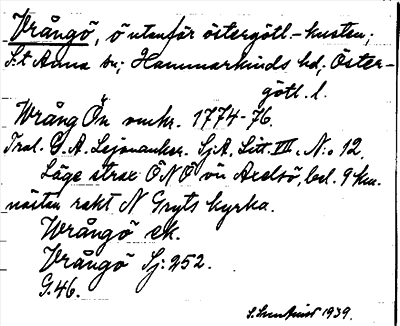 Vrångö, ö utanför östergötl.-kusten;
S:t Anna sn; Hammarkinds hd, Öster-
götl. l.
Wrång Ön omkr. 1774-76.
Tral. G. A. Lejonanckar. SjA, Litt. VII. N:o 12.
Läge strax ÖNÖ om Axelsö, bel. 9 km.
nästan rakt N Gryts kyrka.
Wrångö ek.
Vrångö Sj: 252.
G. 46.
1939.